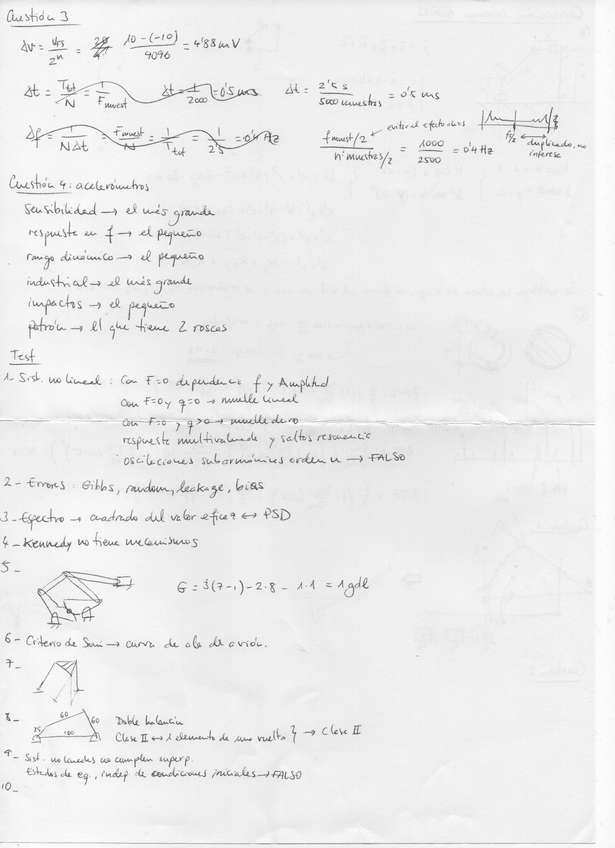 Cuestión 3
Δv = V_FS / 2^n = 10-(-10) / 4096 = 4'88 mV
Δt = T_tot / N = 1 / F_muest Δt = 1 / 2000 = 0'5 ms Δt = 2'5 s / 5000 muestras = 0'5 ms
Δf = 1 / NΔt = F_muest / N = 1 / T_tot = 1 / 2'5 = 0'4 Hz f muest/2 / nº muestras/2 = 1000 / 2500 = 0'4 Hz
evitar el efecto alias
F/2 duplicado, no interesa
Cuestión 4: acelerómetros
Sensibilidad → el más grande
respuesta en f → el pequeño
rango dinámico → el pequeño
industrial → el más grande
impactos → el pequeño
patrón → el que tiene 2 roscas
Test
1- Sist. no lineal : Con F=0 dependencia f y Amplitud
con F=0 y q=0 → muelle lineal
con F=0 y q>0 → muelle duro
respuesta multivaluada y saltos resonancia
oscilaciones subarmónicas orden n → FALSO
2- Errores : Gibbs, random, leakage, bias
3- Espectro → cuadrado del valor eficaz ↔ PSD
4- Kennedy no tiene mecanismos
5-
G = 3(7-1)-2·8-1·1 = 1 gdl
6- Criterio de Soni → curva de ala de avión.
7-
8-
60
60
25
100
Doble balancín
Clase II ↔ 1 elemento da una vuelta } → Clase II
9- Sist. no lineales no cumplen superp.
Estados de eq., indep de condiciones iniciales → FALSO
10-